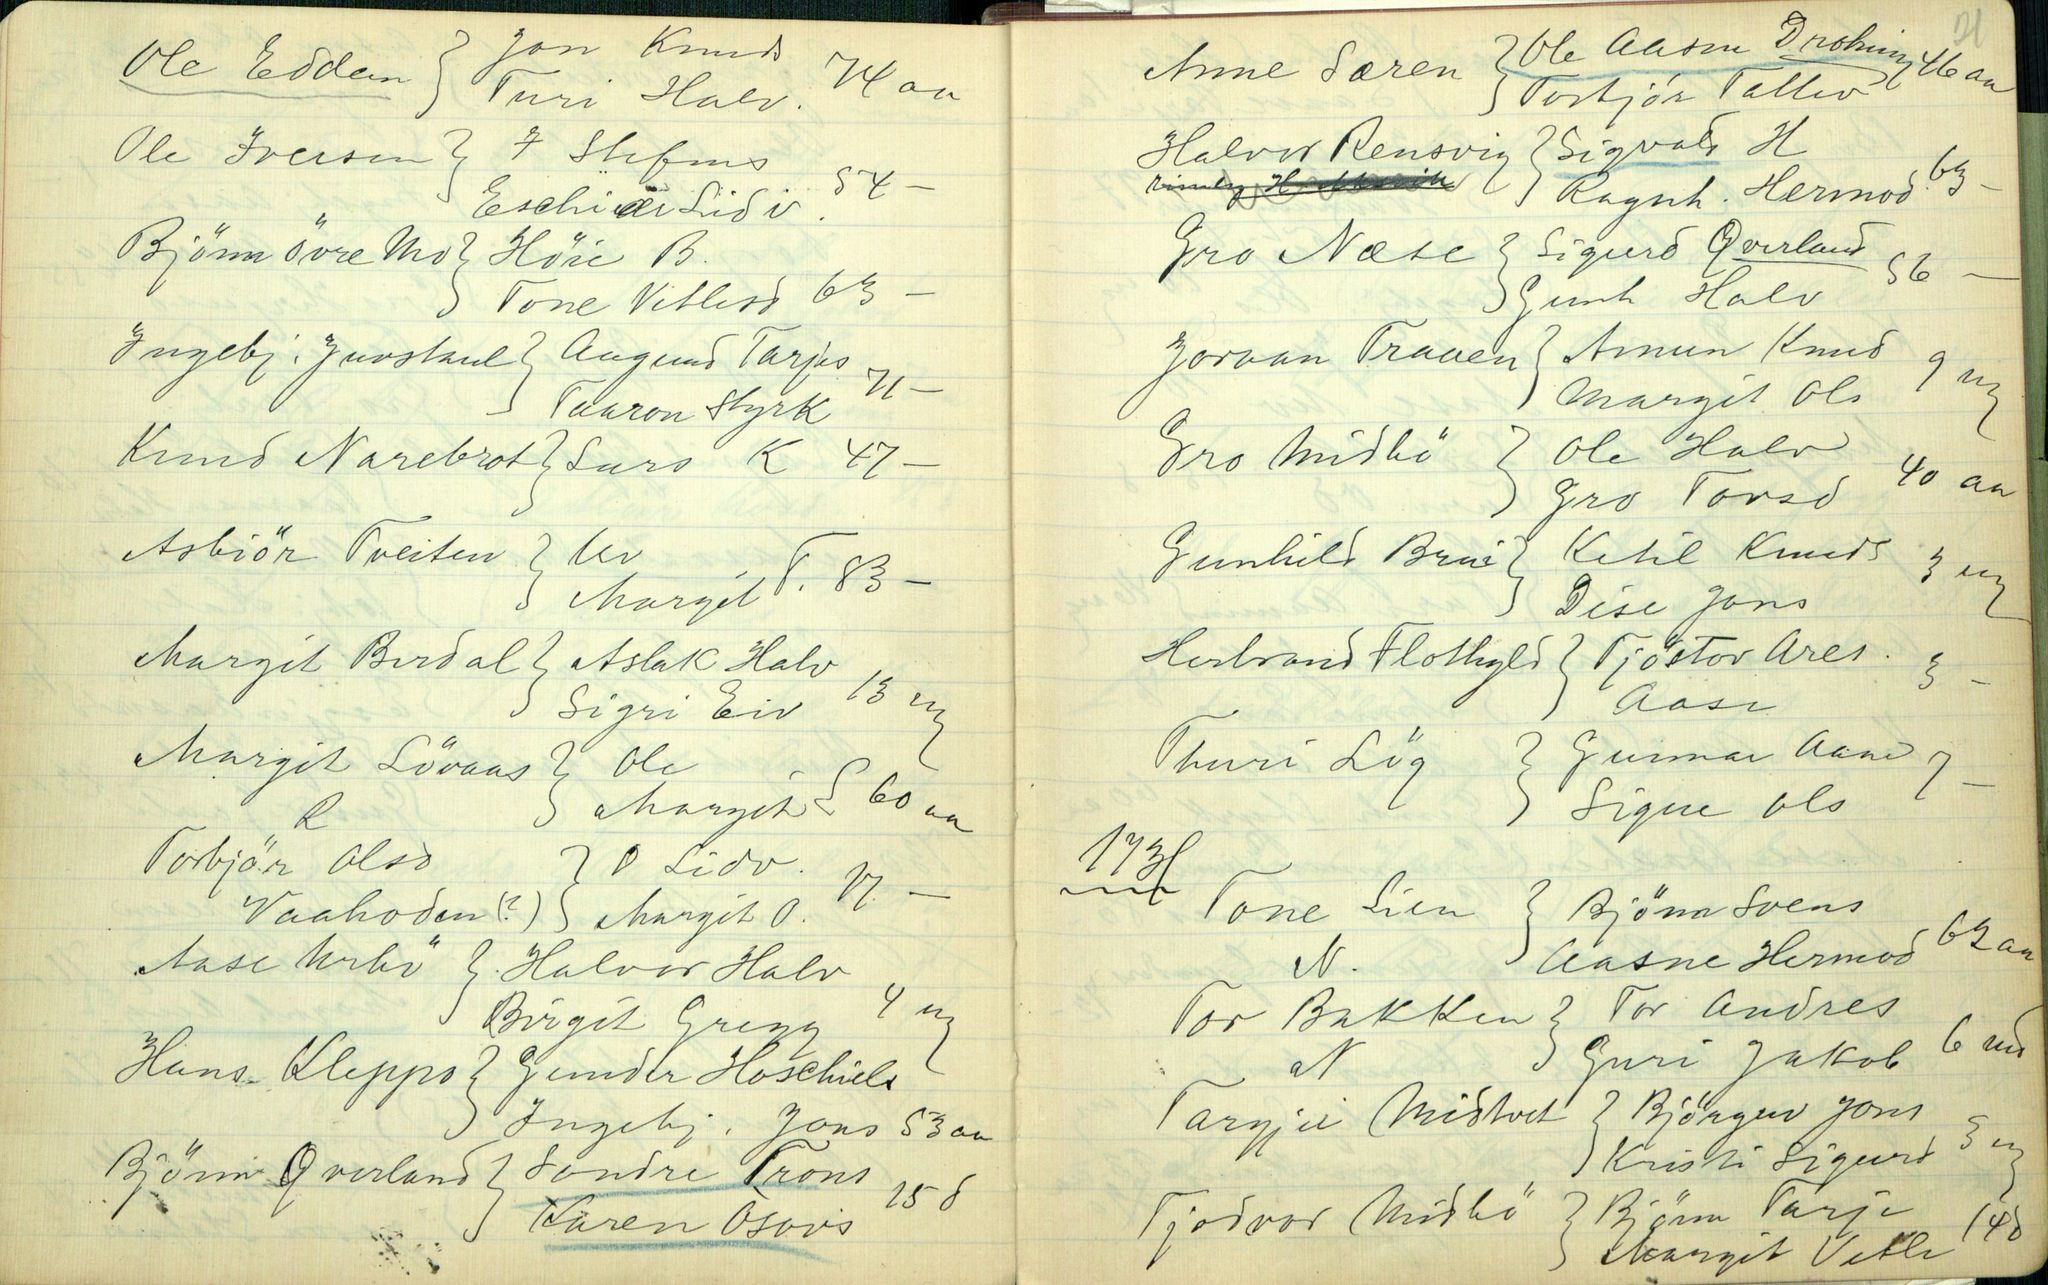 Ole Eddan } Jon Knuds
Turi Halv. 74 aa
Ole Iversen } I Stefens
Lidv. 54 –
Björn övre Mo } Höie B.
Tone Vetlesd 63 –
Ingebj. Juvstaul } Augund Tarjes
Taaron Styrk 71 –
Knud Narebrot } Lurs K 47 –
Asbiör Tveiten }
Margit T. 83 –
Margit Birdal } Aslak Halv
Sigri Eiv 13 ug
Margit Lövaas } Ole
R Margit L 60 aa
Torbjör Olsd } O Lidv.
Vaahodan (?) Margit O. 17. –
Aase } Halvor Halv
Birgit Gregg 4 ug
Hans Kleppo } Gunder
Ingebj. Jons 53 aa
Björn Qverland } Sondre Trons
Karen Osovis 15 d
21
Anne Særen } Ole Aasm
Torbjör Tallev 46 aa
Halvor Rensvig } Sigvald H
Ragnh. Hermod. 63 –
Gro Næse } Sigurd Qverland
Gunh Halv 56 –
Joraan Traaen } Amun Knud
Margit Ols 9 ug
Gro Midbö } Ole Halv
Gro Torsd 40 aa
Gunhild Brui } Ketil Knuds
Dise Jons 3 ug
Herbrand Flothyld } Tjöstov Ares.
Aase 3 –
Thuri Lög } Gunnar Aane
Signe Ols 7 –
173
Tone Lien } Björn Svens
N. Aasne Hermod 62 aa
Tor Bakken } Tor Andres
N Guri Jakob 6 md
Targjei Midtvet } Björguv Jons
Kristi Sigurd 3 ug
Tjodvor Midbö } Björn Tarje
Margit Vetle 14 d